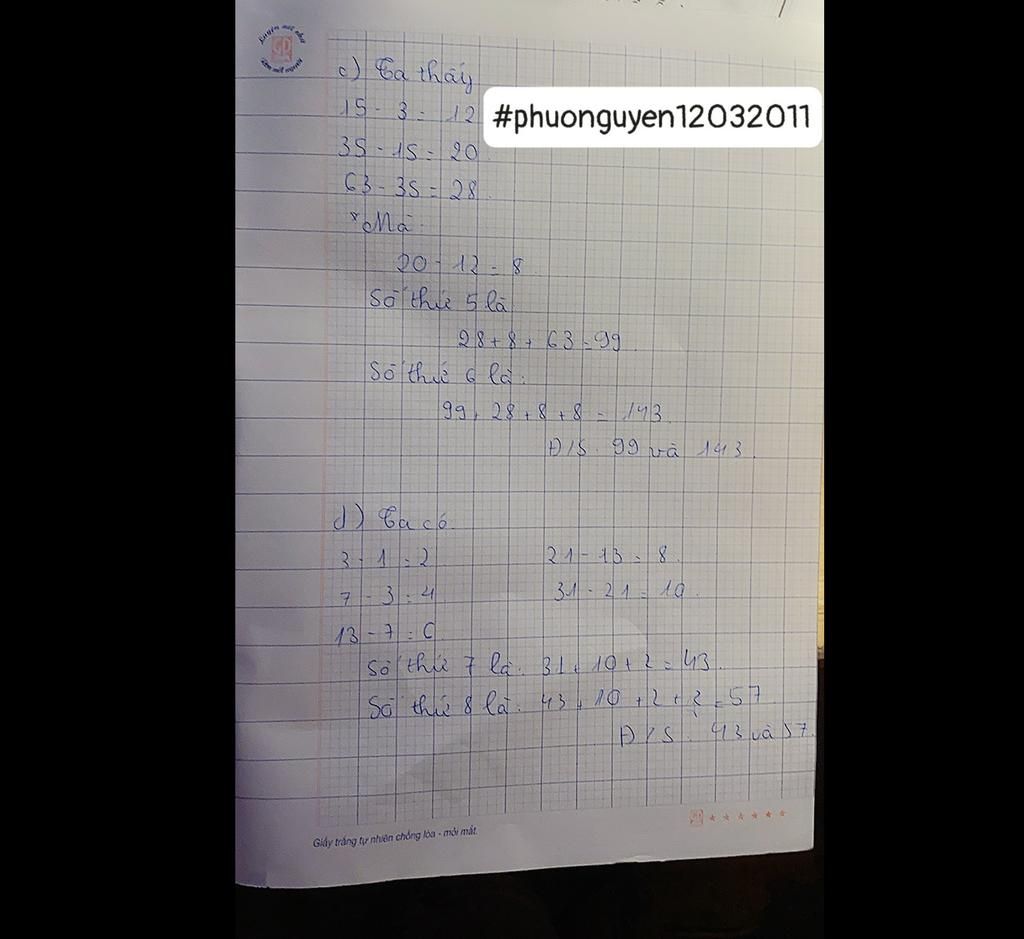 c) Ta thấy
15 - 3 = 12
#phuonguyen12032011
35 - 15 = 20
63 - 35 = 28.
* Mà:
20 - 12 = 8.
Số thứ 5 là
28 + 8 + 63 = 99.
Số thứ 6 là:
99 + 28 + 8 + 8 = 143.
Đ/S: 99 và 143.
d) Ta có
3 - 1 = 2 21 - 13 = 8.
7 - 3 = 4 31 - 21 = 10.
13 - 7 = 6
Số thứ 7 là: 31 + 10 + 2 = 43.
Số thứ 8 là: 43 + 10 + 2 + 2 = 57
Đ/S: 43 và 57.
Giấy trắng tự nhiên chống lóa - mỏi mắt.